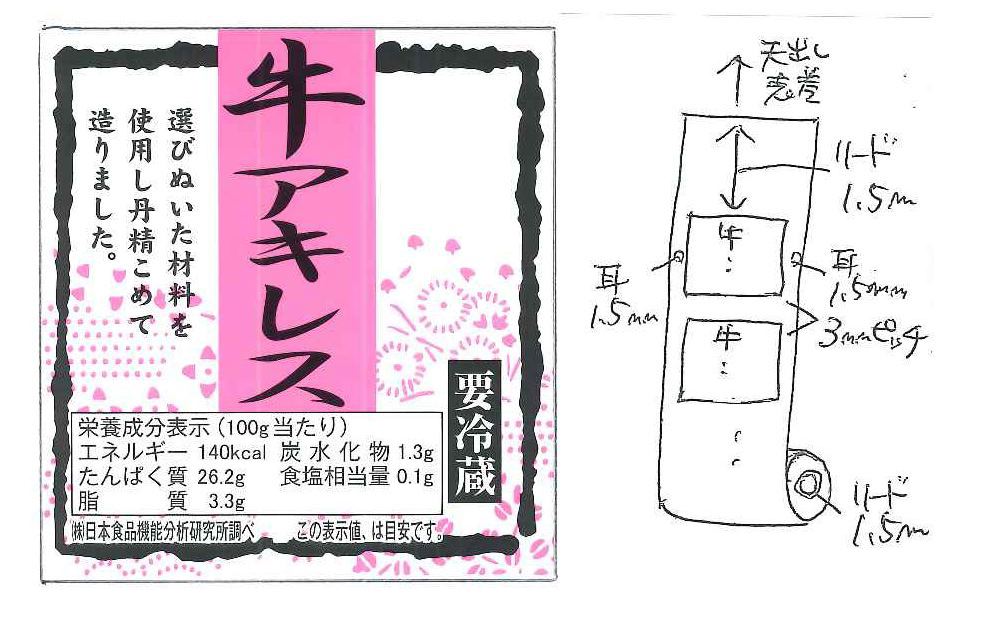 牛アキレス
選びぬいた材料を
使用し丹精こめて
造りました。
要冷蔵
栄養成分表示(100g当たり)
エネルギー 140kcal 炭水化物 1.3g
たんぱく質 26.2g 食塩相当量 0.1g
脂質 3.3g
㈱日本食品機能分析研究所調べ この表示値、は目安です。
天出し
表巻
リード
1.5m
牛
耳
1.5mm
耳
1.5mm
3mmピッチ
牛
リード
1.5m